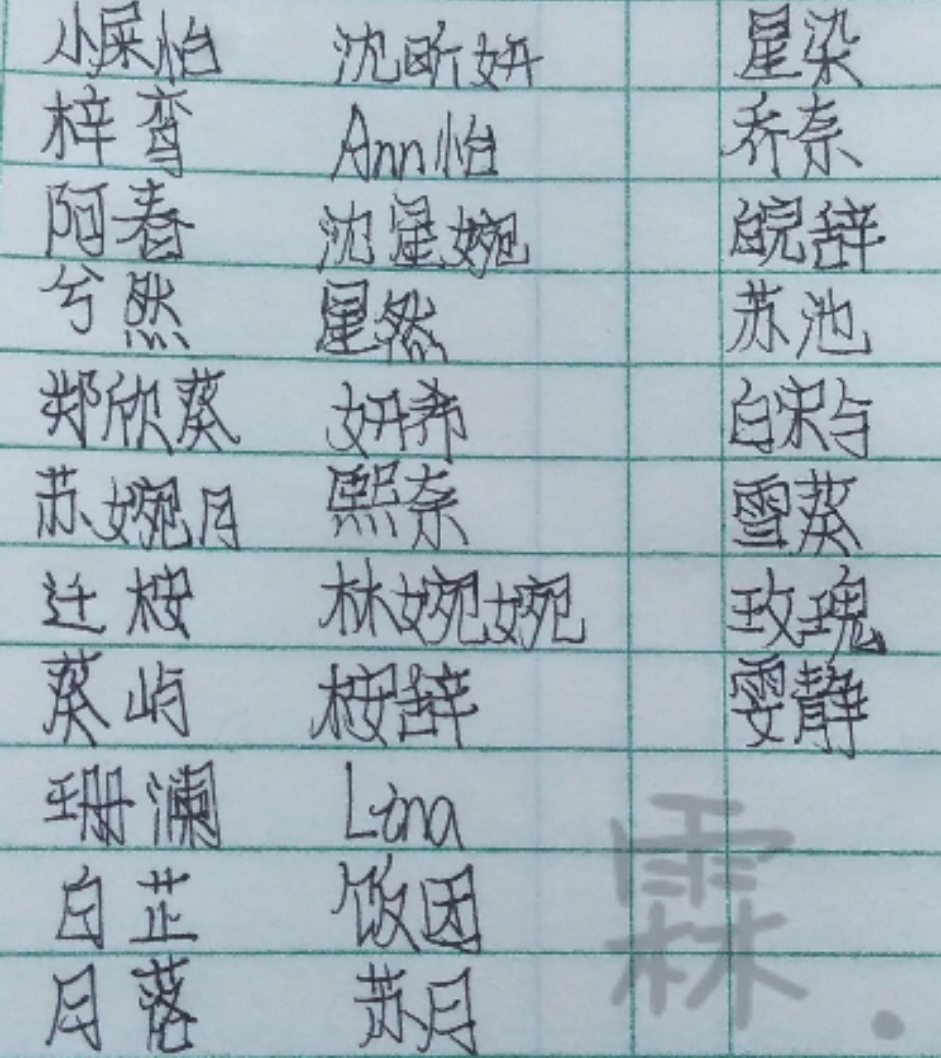 小屎怡 沈昕妍 星染
梓鸾 Ann怡 乔奈
阿春 沈星婉 皖辞
兮然 星然 苏池
郑欣葵 妍希 白宋与
苏婉月 熙奈 雪葵
迁桉 林婉婉 玫瑰
葵屿 桉辞 雯静
珊澜 Lina
白芷 饭因
月落 苏月
霖.